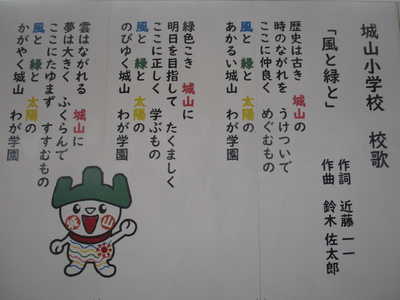 城山小学校　校歌
「風と緑と」
作詞　近藤　一一
作曲　鈴木　佐太郎
歴史は古き　城山の
時のながれを　うけついで
ここに仲良く　めぐむもの
風と　緑と　太陽の
あかるい城山　わが学園
緑色こき　城山に
明日を目指して　たくましく
ここに正しく　学ぶもの
風と　緑と　太陽の
のびゆく城山　わが学園
雲はながれる　城山に
夢は大きく　ふくらんで
ここにたゆまず　すすむもの
風と　緑と　太陽の
かがやく城山　わが学園
城山